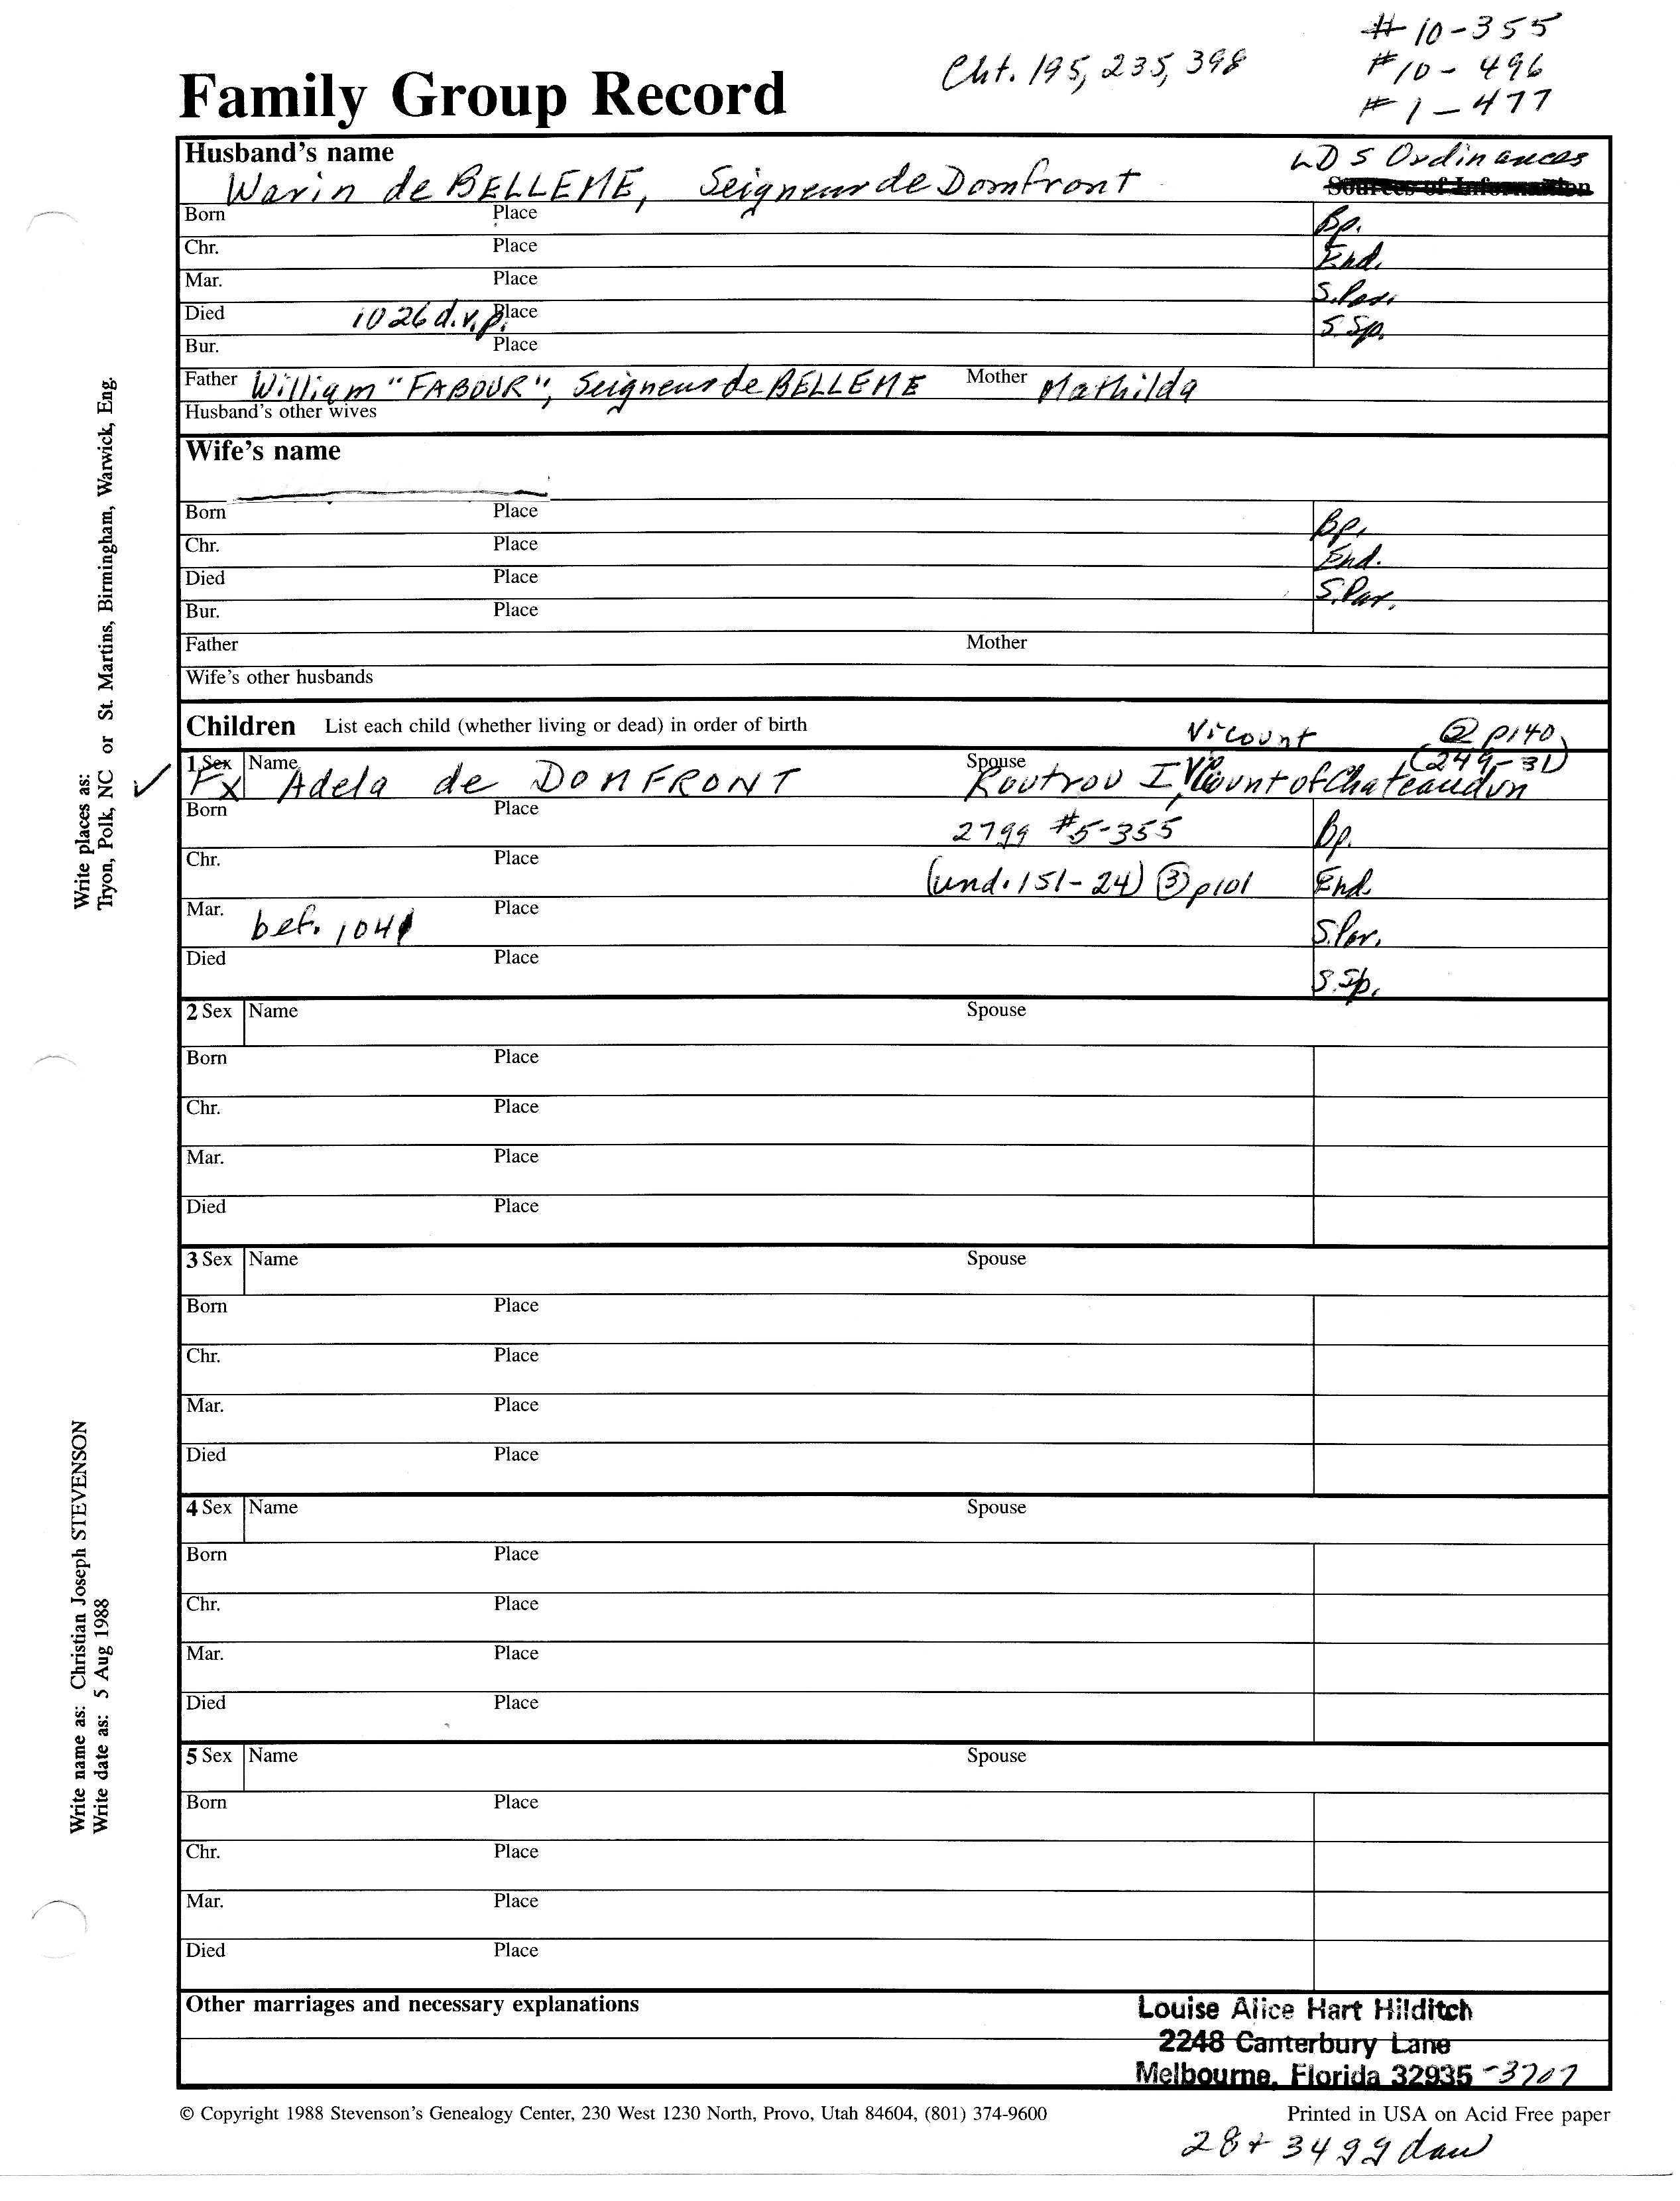 # 10-355
Cht. 195, 235, 398
# 10 - 496
# 1 - 477
Family Group Record
Husband's name
LDS Ordinances
Sources of Information
Warin de BELLEME, Seigneur de Domfront
Born Place Bp.
Chr. Place End.
Mar. Place S.Par.
Died 1026 d.v.p. Place S.Sp.
Bur. Place
Father William "FABOUR", Seigneur de BELLEME Mother Mathilda
Husband's other wives
Wife's name
Born Place Bp.
Chr. Place End.
Died Place S.Par.
Bur. Place
Father Mother
Wife's other husbands
Children List each child (whether living or dead) in order of birth
Vicount ② p140
(249-31)
1 Sex Name Spouse
Fx Adela de DOMFRONT Routrou I, Vicount of Chateaudun
Born Place 27gg #5-355 Bp.
Chr. Place (und. 151-24) ③ p101 End.
Mar. bef. 1041 Place S.Par.
Died Place S.Sp.
2 Sex Name Spouse
Born Place
Chr. Place
Mar. Place
Died Place
3 Sex Name Spouse
Born Place
Chr. Place
Mar. Place
Died Place
4 Sex Name Spouse
Born Place
Chr. Place
Mar. Place
Died Place
5 Sex Name Spouse
Born Place
Chr. Place
Mar. Place
Died Place
Other marriages and necessary explanations
Louise Alice Hart Hilditch
2248 Canterbury Lane
Melbourne, Florida 32935 -3707
© Copyright 1988 Stevenson's Genealogy Center, 230 West 1230 North, Provo, Utah 84604, (801) 374-9600 Printed in USA on Acid Free paper
28+ 34 gg dau
Write places as:
Tryon, Polk, NC or St. Martins, Birmingham, Warwick, Eng.
Write name as: Christian Joseph STEVENSON
Write date as: 5 Aug 1988